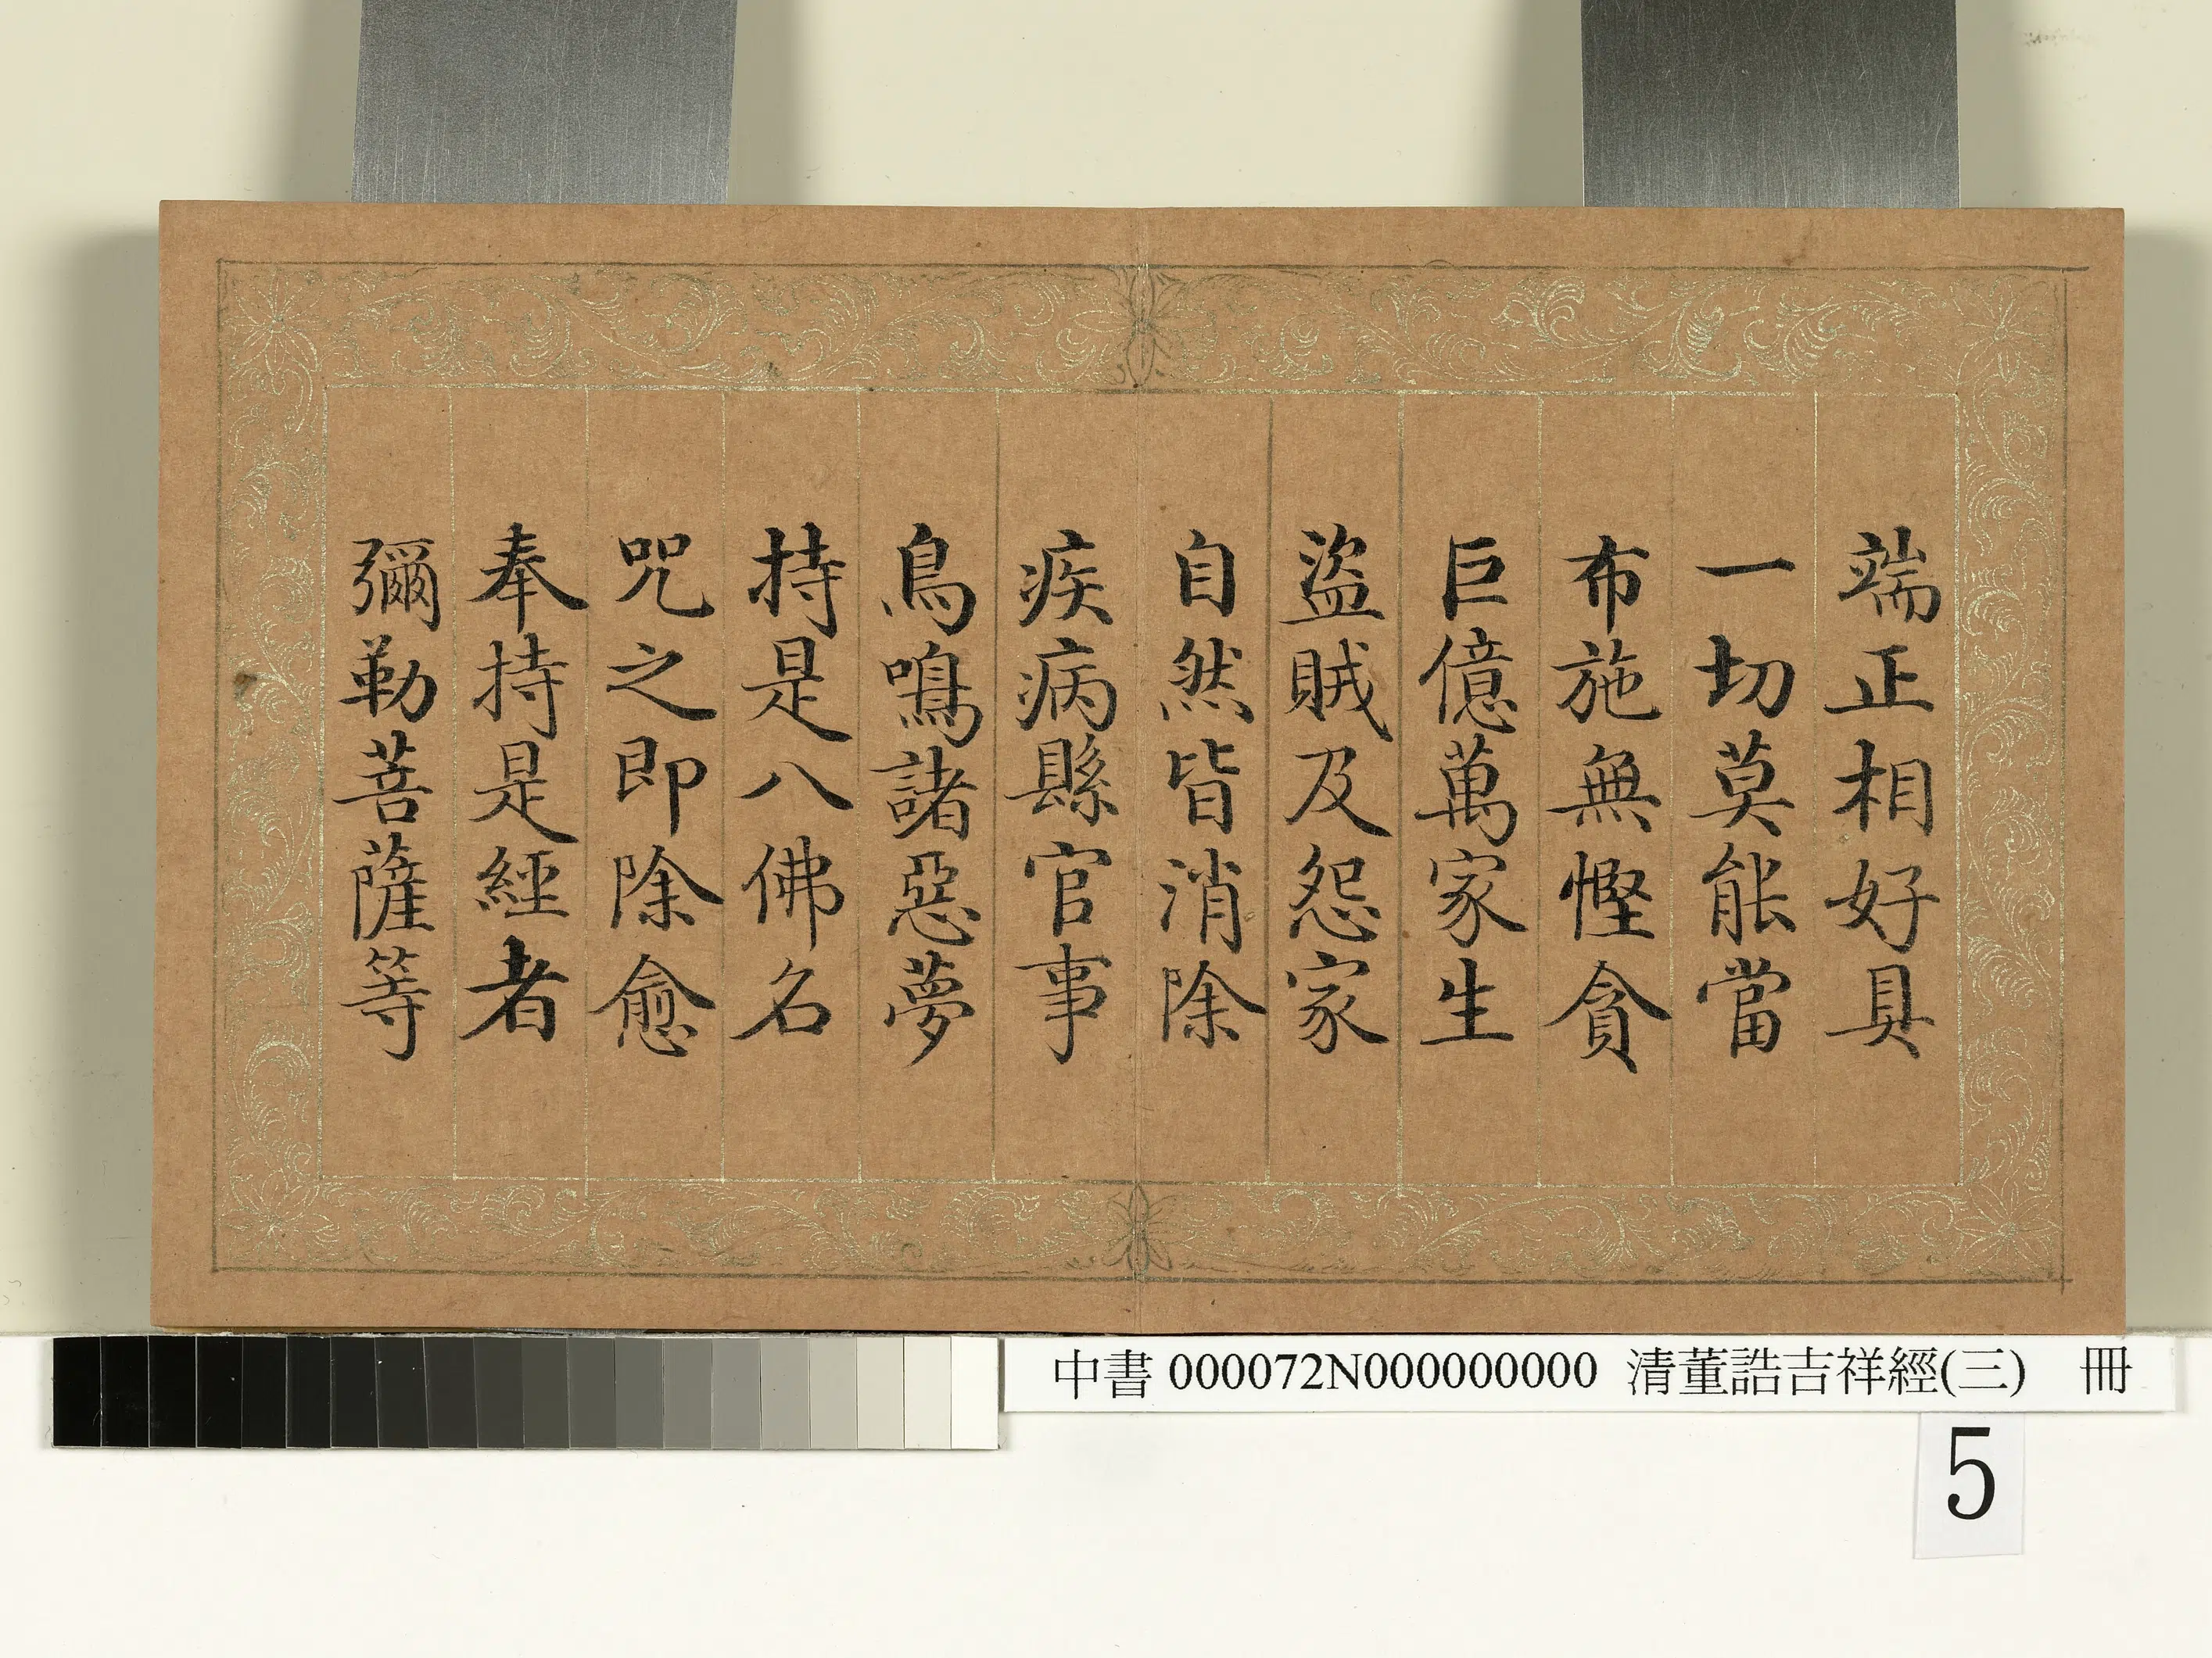 端正相好具
一切莫能當
布施無慳貪
巨億萬家生
盜賊及怨家
自然皆消除
疾病縣官事
鳥鳴諸惡夢
持是八佛名
咒之即除愈
奉持是經者
彌勒菩薩等
中書000072N000000000 清董誥吉祥經(三) 冊
5